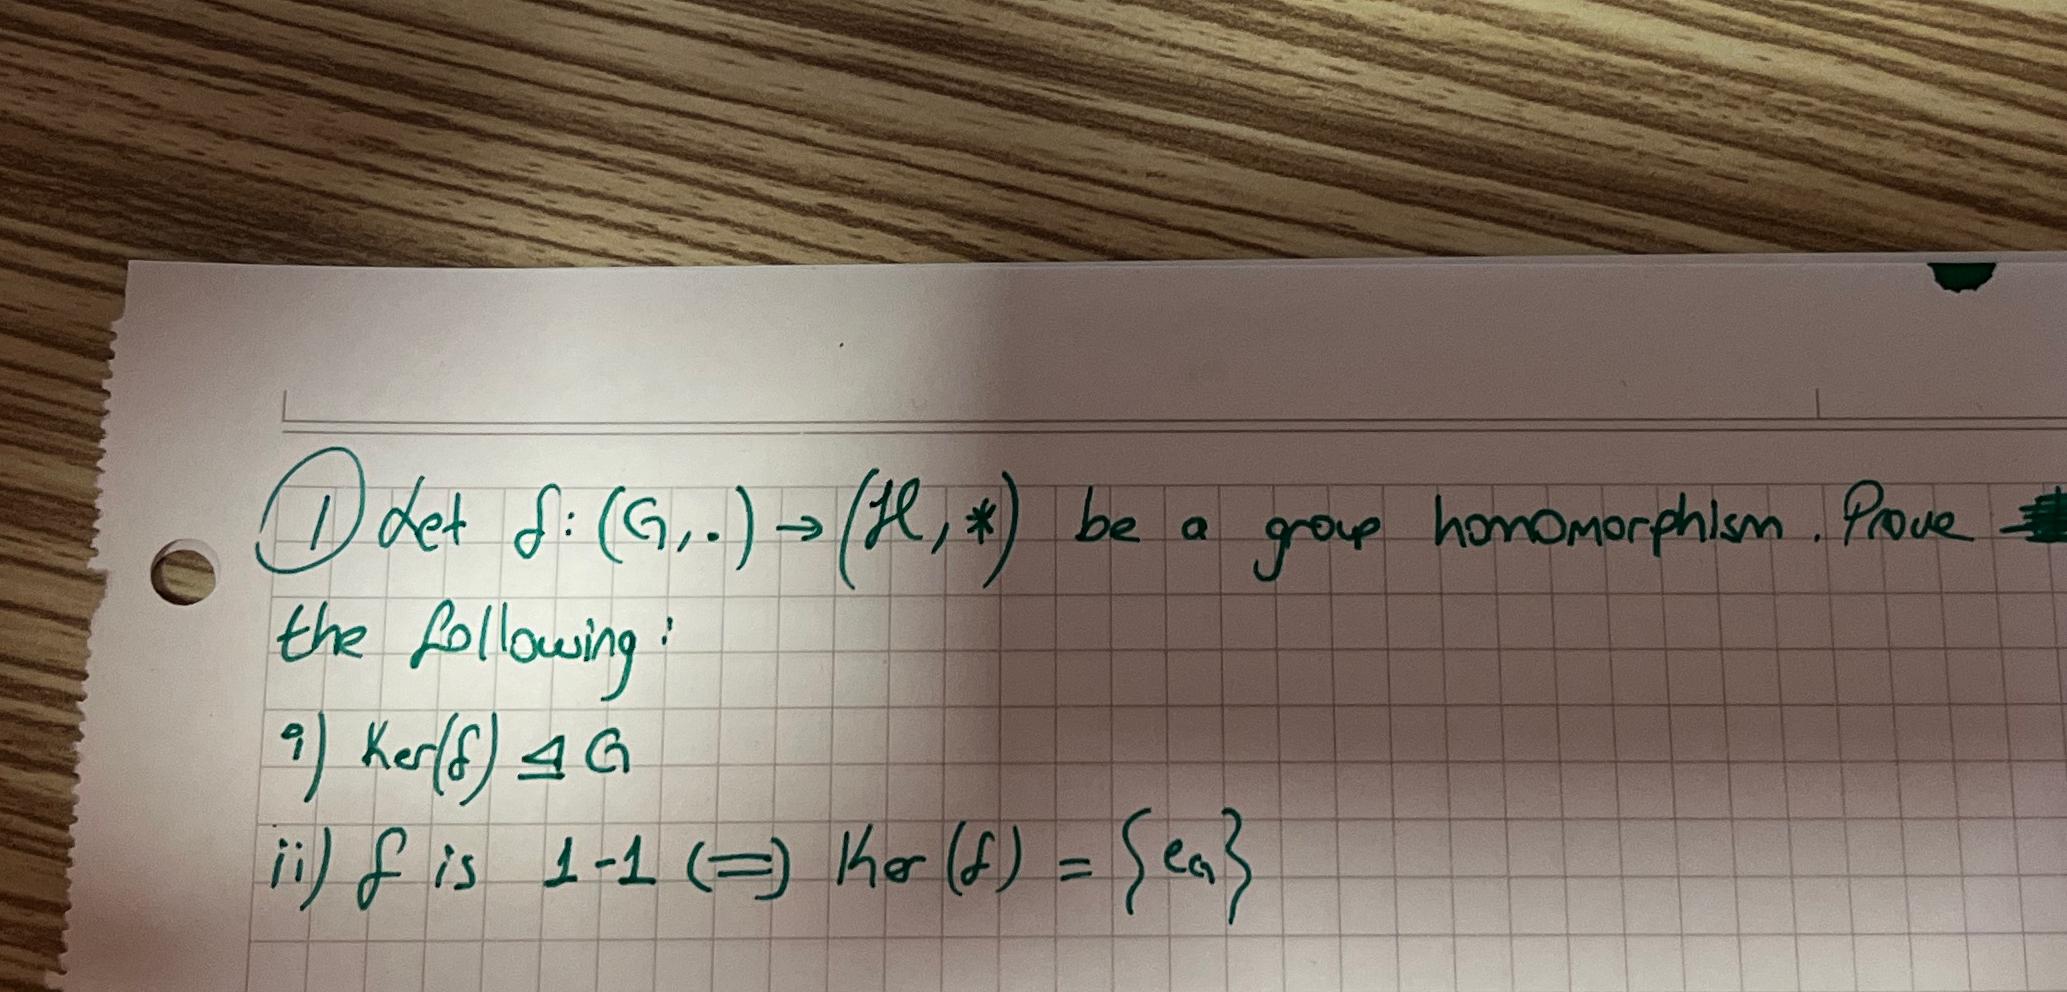 ① Let f: (G, .) → (H, *) be a group homomorphism. Prove
the following:
i) Ker(f) ⊴ G
ii) f is 1-1 (=) Ker (f) = {e_G}